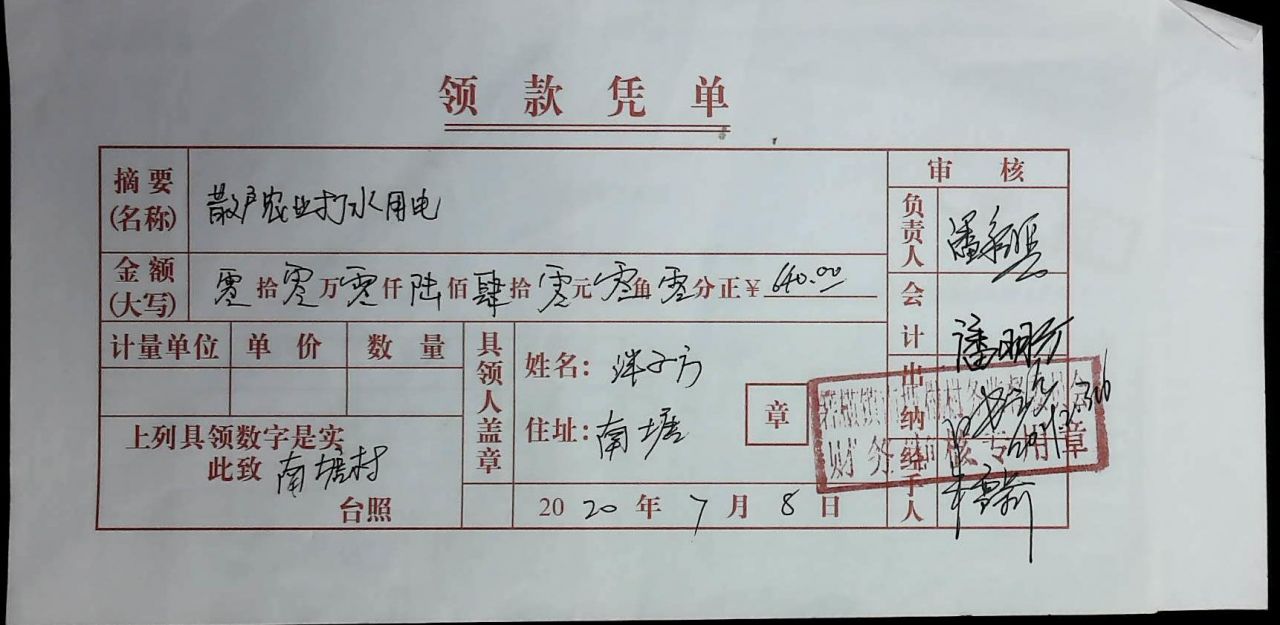 领款凭单
摘要(名称) 散户农业打水用电
审核
负责人
金额(大写) 零拾零万零仟陆佰肆拾零元零角零分正¥640.00
会计
计量单位 单价 数量
具领人盖章
姓名:
住址:南塘
章
出纳
财务 核专用章
上列具领数字是实
此致 南塘村
台照
2020年7月8日
经手人